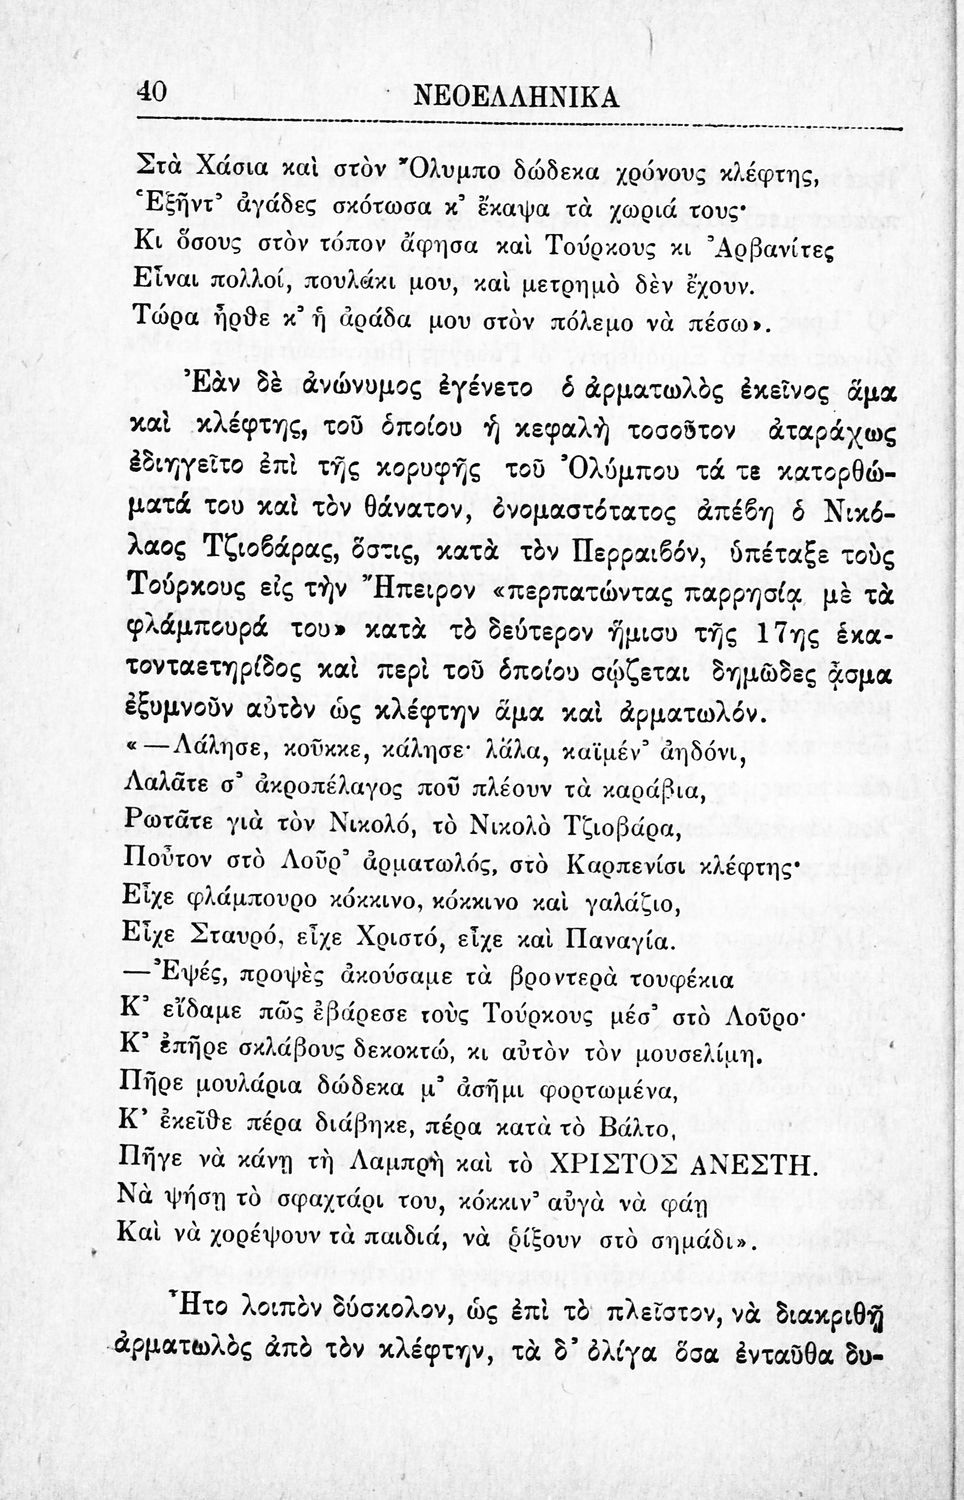 40 ΝΕΟΕΛΛΗΝΙΚΑ
Στὰ Χάσια καὶ στὸν Ὄλυμπο δώδεκα χρόνους κλέφτης,
Ἑξῆντ’ ἀγάδες σκότωσα κ’ ἔκαψα τὰ χωριά τους·
Κι ὅσους στὸν τόπον ἄφησα καὶ Τούρκους κι Ἀρβανίτες
Εἶναι πολλοί, πουλάκι μου, καὶ μετρημὸ δὲν ἔχουν.
Τώρα ἦρθε κ’ ἡ ἀράδα μου στὸν πόλεμο νὰ πέσω».
Ἐὰν δὲ ἀνώνυμος ἐγένετο ὁ ἀρματωλὸς ἐκεῖνος ἅμα
καὶ κλέφτης, τοῦ ὁποίου ἡ κεφαλὴ τοσοῦτον ἀταράχως
ἐδιηγεῖτο ἐπὶ τῆς κορυφῆς τοῦ Ὀλύμπου τά τε κατορθώ-
ματά του καὶ τὸν θάνατον, ὀνομαστότατος ἀπέβη ὁ Νικό-
λαος Τζιοβάρας, ὅστις, κατὰ τὸν Περραιβόν, ὑπέταξε τοὺς
Τούρκους εἰς τὴν Ἤπειρον «περπατώντας παρρησίᾳ μὲ τὰ
φλάμπουρά του» κατὰ τὸ δεύτερον ἥμισυ τῆς 17ης ἑκα-
τονταετηρίδος καὶ περὶ τοῦ ὁποίου σῴζεται δημῶδες ᾆσμα
ἐξυμνοῦν αὐτὸν ὡς κλέφτην ἅμα καὶ ἀρματωλόν.
« —Λάλησε, κοῦκκε, κάλησε· λάλα, καϊμέν’ ἀηδόνι,
Λαλᾶτε σ’ ἀκροπέλαγος ποῦ πλέουν τὰ καράβια,
Ρωτᾶτε γιὰ τὸν Νικολό, τὸ Νικολὸ Τζιοβάρα,
Ποὖτον στὸ Λοῦρ’ ἀρματωλός, στὸ Καρπενίσι κλέφτης·
Εἶχε φλάμπουρο κόκκινο, κόκκινο καὶ γαλάζιο,
Εἶχε Σταυρό, εἶχε Χριστό, εἶχε καὶ Παναγία.
—Ἐψές, προψὲς ἀκούσαμε τὰ βροντερὰ τουφέκια
Κ’ εἴδαμε πῶς ἐβάρεσε τοὺς Τούρκους μέσ’ στὸ Λοῦρο·
Κ’ ἐπῆρε σκλάβους δεκοκτώ, κι αὐτὸν τὸν μουσελίμη.
Πῆρε μουλάρια δώδεκα μ’ ἀσῆμι φορτωμένα,
Κ’ ἐκεῖθε πέρα διάβηκε, πέρα κατὰ τὸ Βάλτο,
Πῆγε νὰ κάνῃ τὴ Λαμπρὴ καὶ τὸ ΧΡΙΣΤΟΣ ΑΝΕΣΤΗ.
Νὰ ψήσῃ τὸ σφαχτάρι του, κόκκιν’ αὐγὰ νὰ φάῃ
Καὶ νὰ χορέψουν τὰ παιδιά, νὰ ῥίξουν στὸ σημάδι».
Ἦτο λοιπὸν δύσκολον, ὡς ἐπὶ τὸ πλεῖστον, νὰ διακριθῇ
ἀρματωλὸς ἀπὸ τὸν κλέφτην, τὰ δ’ ὀλίγα ὅσα ἐνταῦθα δυ-